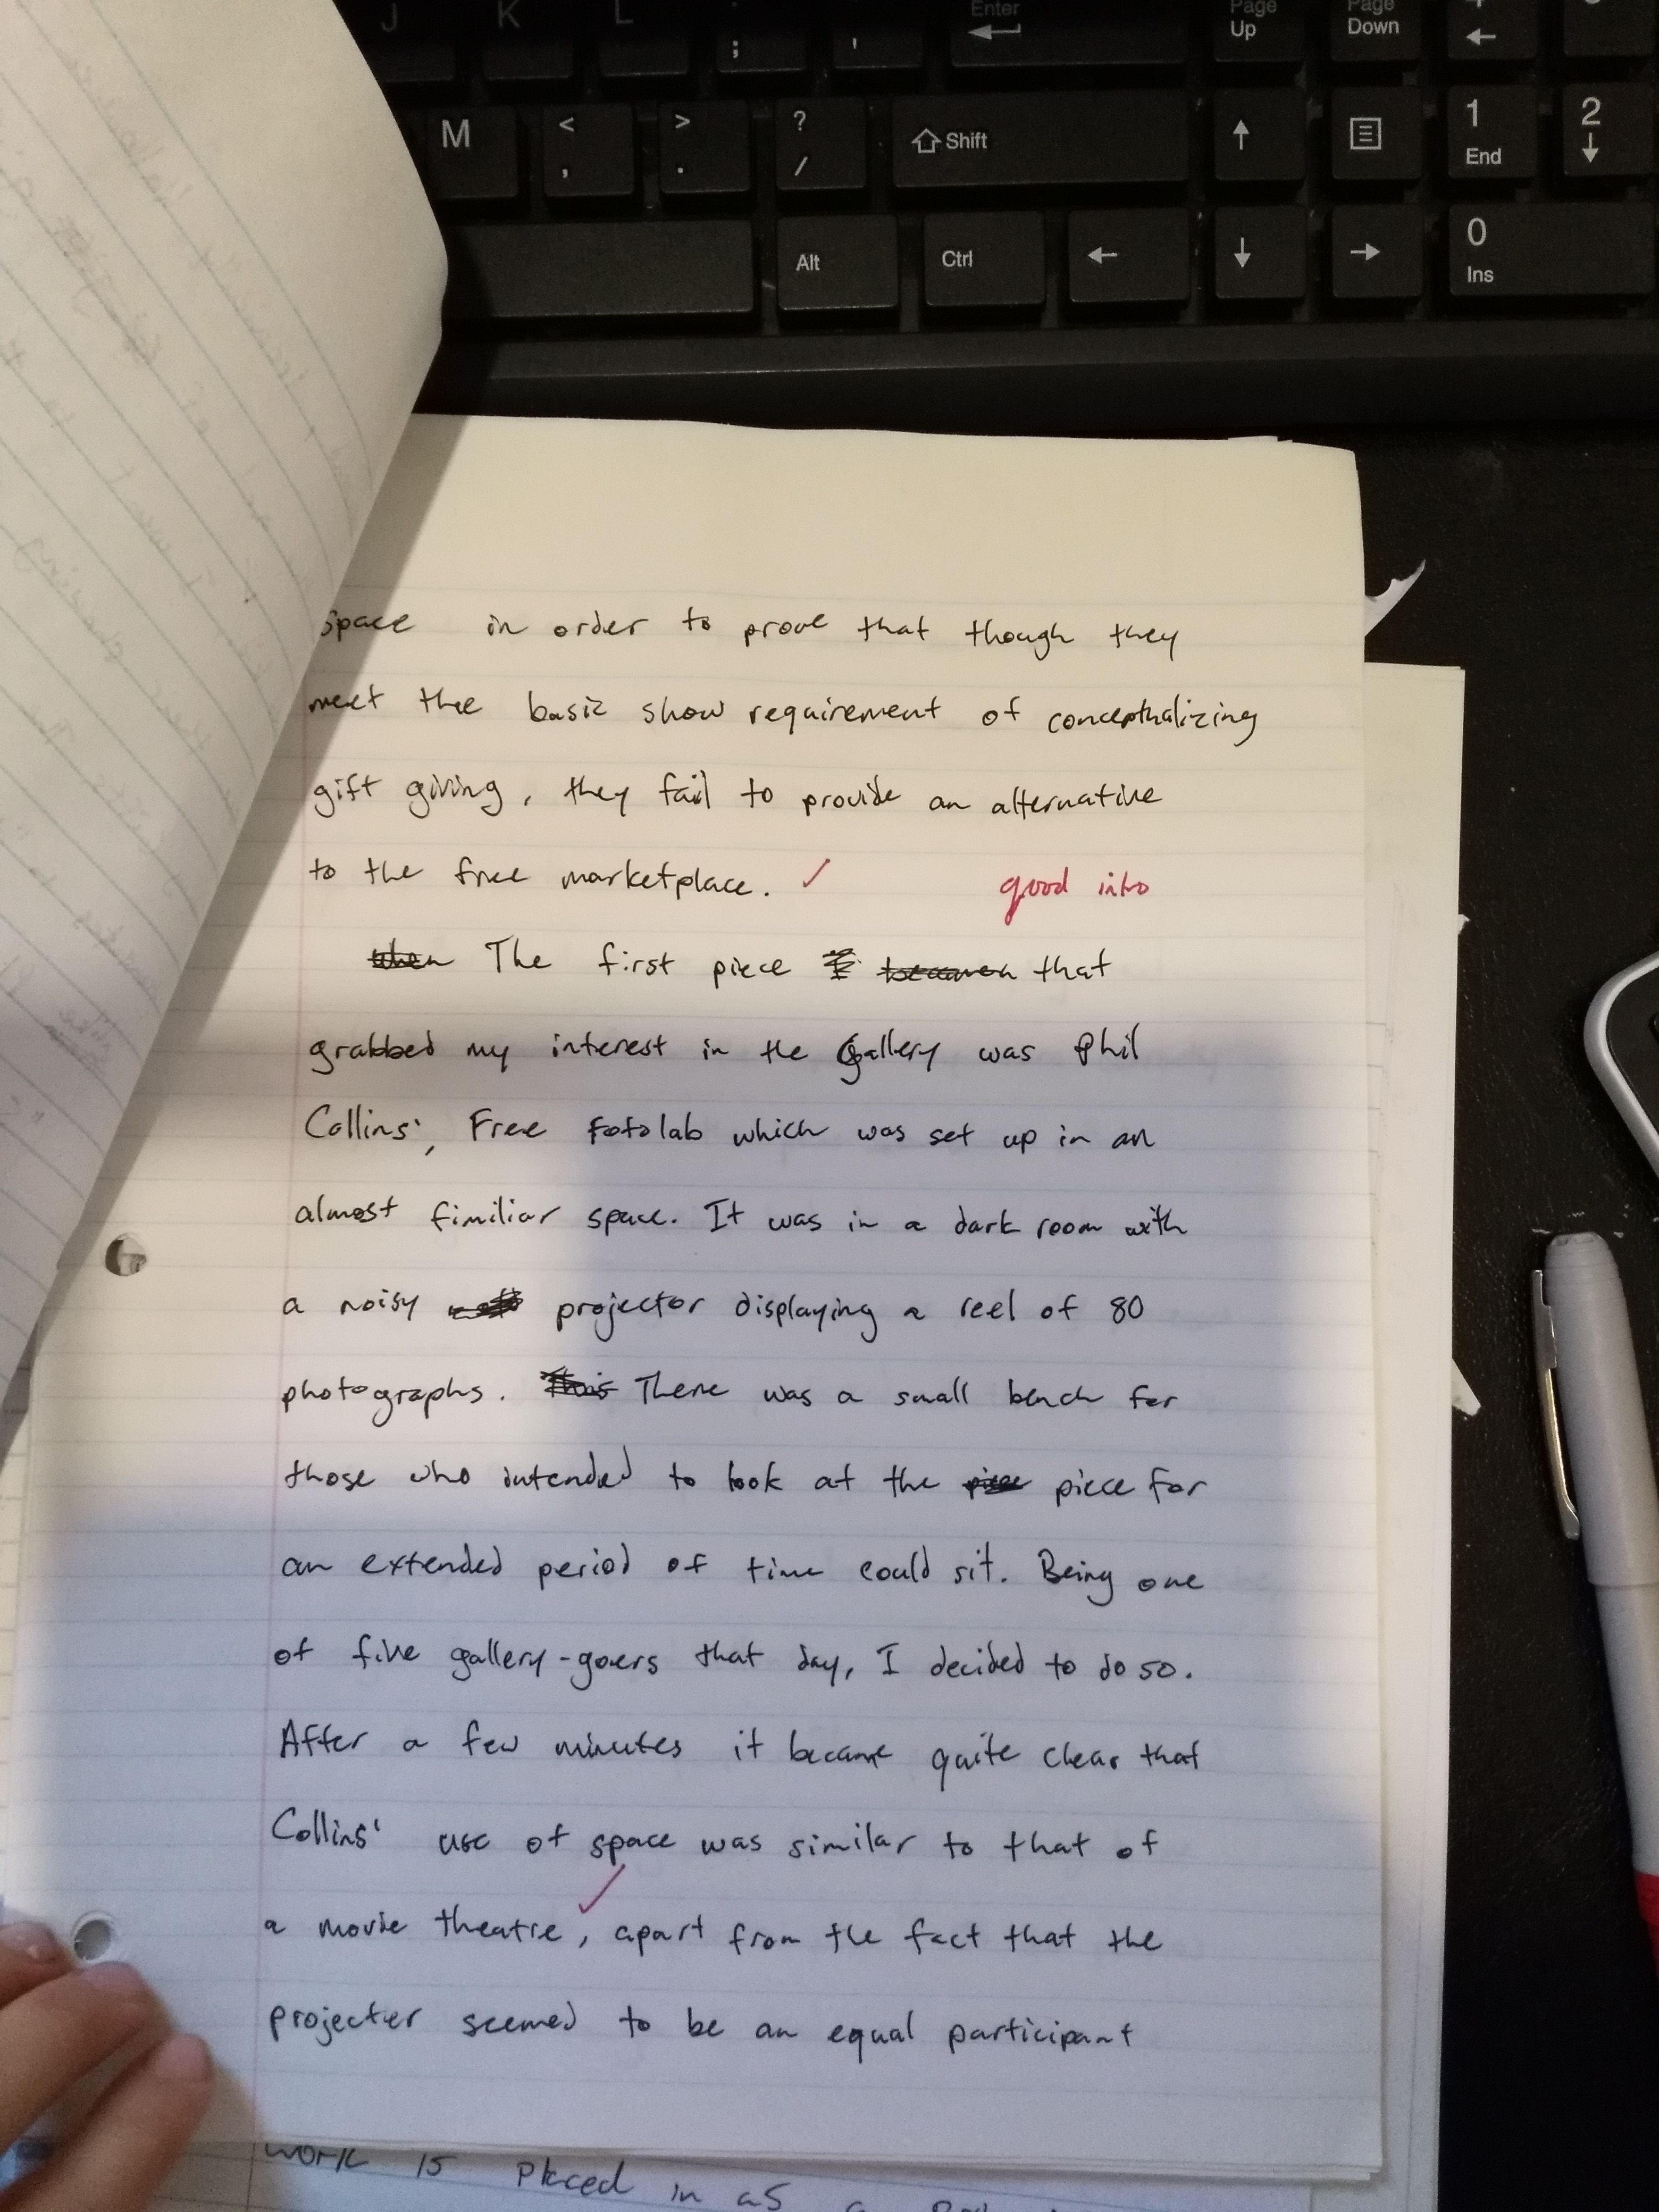 J K L : ; ' Enter Page Up Page Down
M < , > . ? / Shift 1 End 2
Alt Ctrl 0 Ins
space in order to prove that though they
meet thee basic show requirement of concepthalizing
gift giving, they fail to provide an alternative
to the free marketplace. ✓ good intro
when The first piece that
grabbed my interest in the Gallery was Phil
Collins', Free fotolab which was set up in an
almost fimiliar space. It was in a dark room with
a noisy projector displaying a reel of 80
photographs. This There was a small bench for
those who intended to look at the piece piece for
an extended period of time could sit. Being one
of five gallery-goers that day, I decided to do so.
After a few minutes it became quite clear that
Collins' use of space was similar to that of
a movie theatre, ✓ apart from the fact that the
projecter seemed to be an equal participant
work is placed in as a